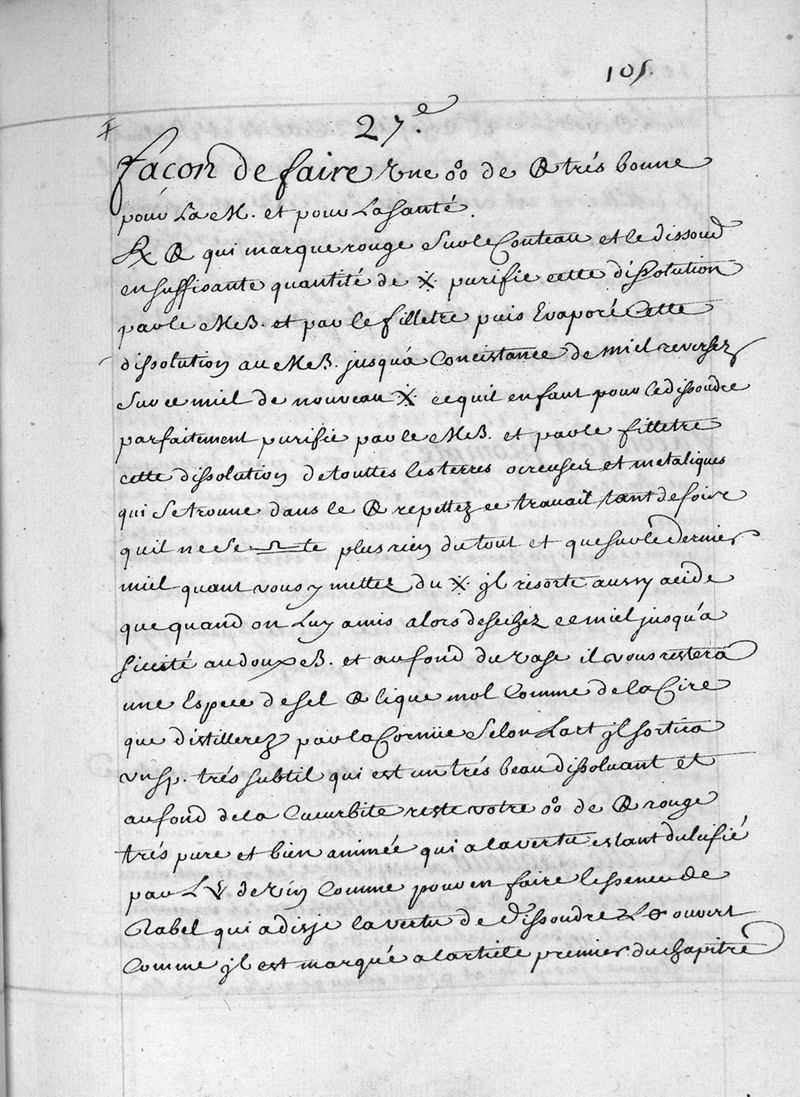 105.
27.e
façon de faire une o°o de ⊕ trés bonne
pour La M. et pour La Santé.
℞ ⊕ qui marque rouge Sur le Couteau et le dissoud
en suffisante quantité de purifie cette dissolution
par le MB. et par le filletre puis Evaporé Cette
dissolution au MB. jusqu'a Concistance de miel reversez
Sur ce miel de nouveau ce quil en faut pour le dissoudre
parfaitement purifie par le MB. et par le filletre
cette dissolution de touttes les terres ocreuses et metaliques
qui Se trouve dans le ⊕ repettez ce travail tant de foire
quil ne Se plus rien du tout et que Sur le dernier
miel quant vous y mettez du jl resorte aussy acide
que quand on Luy a mis alors desechez ce miel jusqu'a
Siccité au doux B. et au fond du vase il vous restera
une Espece de sel ⊕ lique mol Comme de la Cire
que distillerez par la Cornüe Selon Lart jl sortira
vn sp. trés subtil qui est un trés beau dissoluant et
au fond de la Cucurbite reste votre o°o de ⊕ rouge
trés pure et bien animée qui a la vertu estant dulcifié
par L de vin Comme pour en faire lessence de
Rabel qui a disje la vertu de dissoudre L ouvert
Comme jl est marqué a larticle premier du chapitre